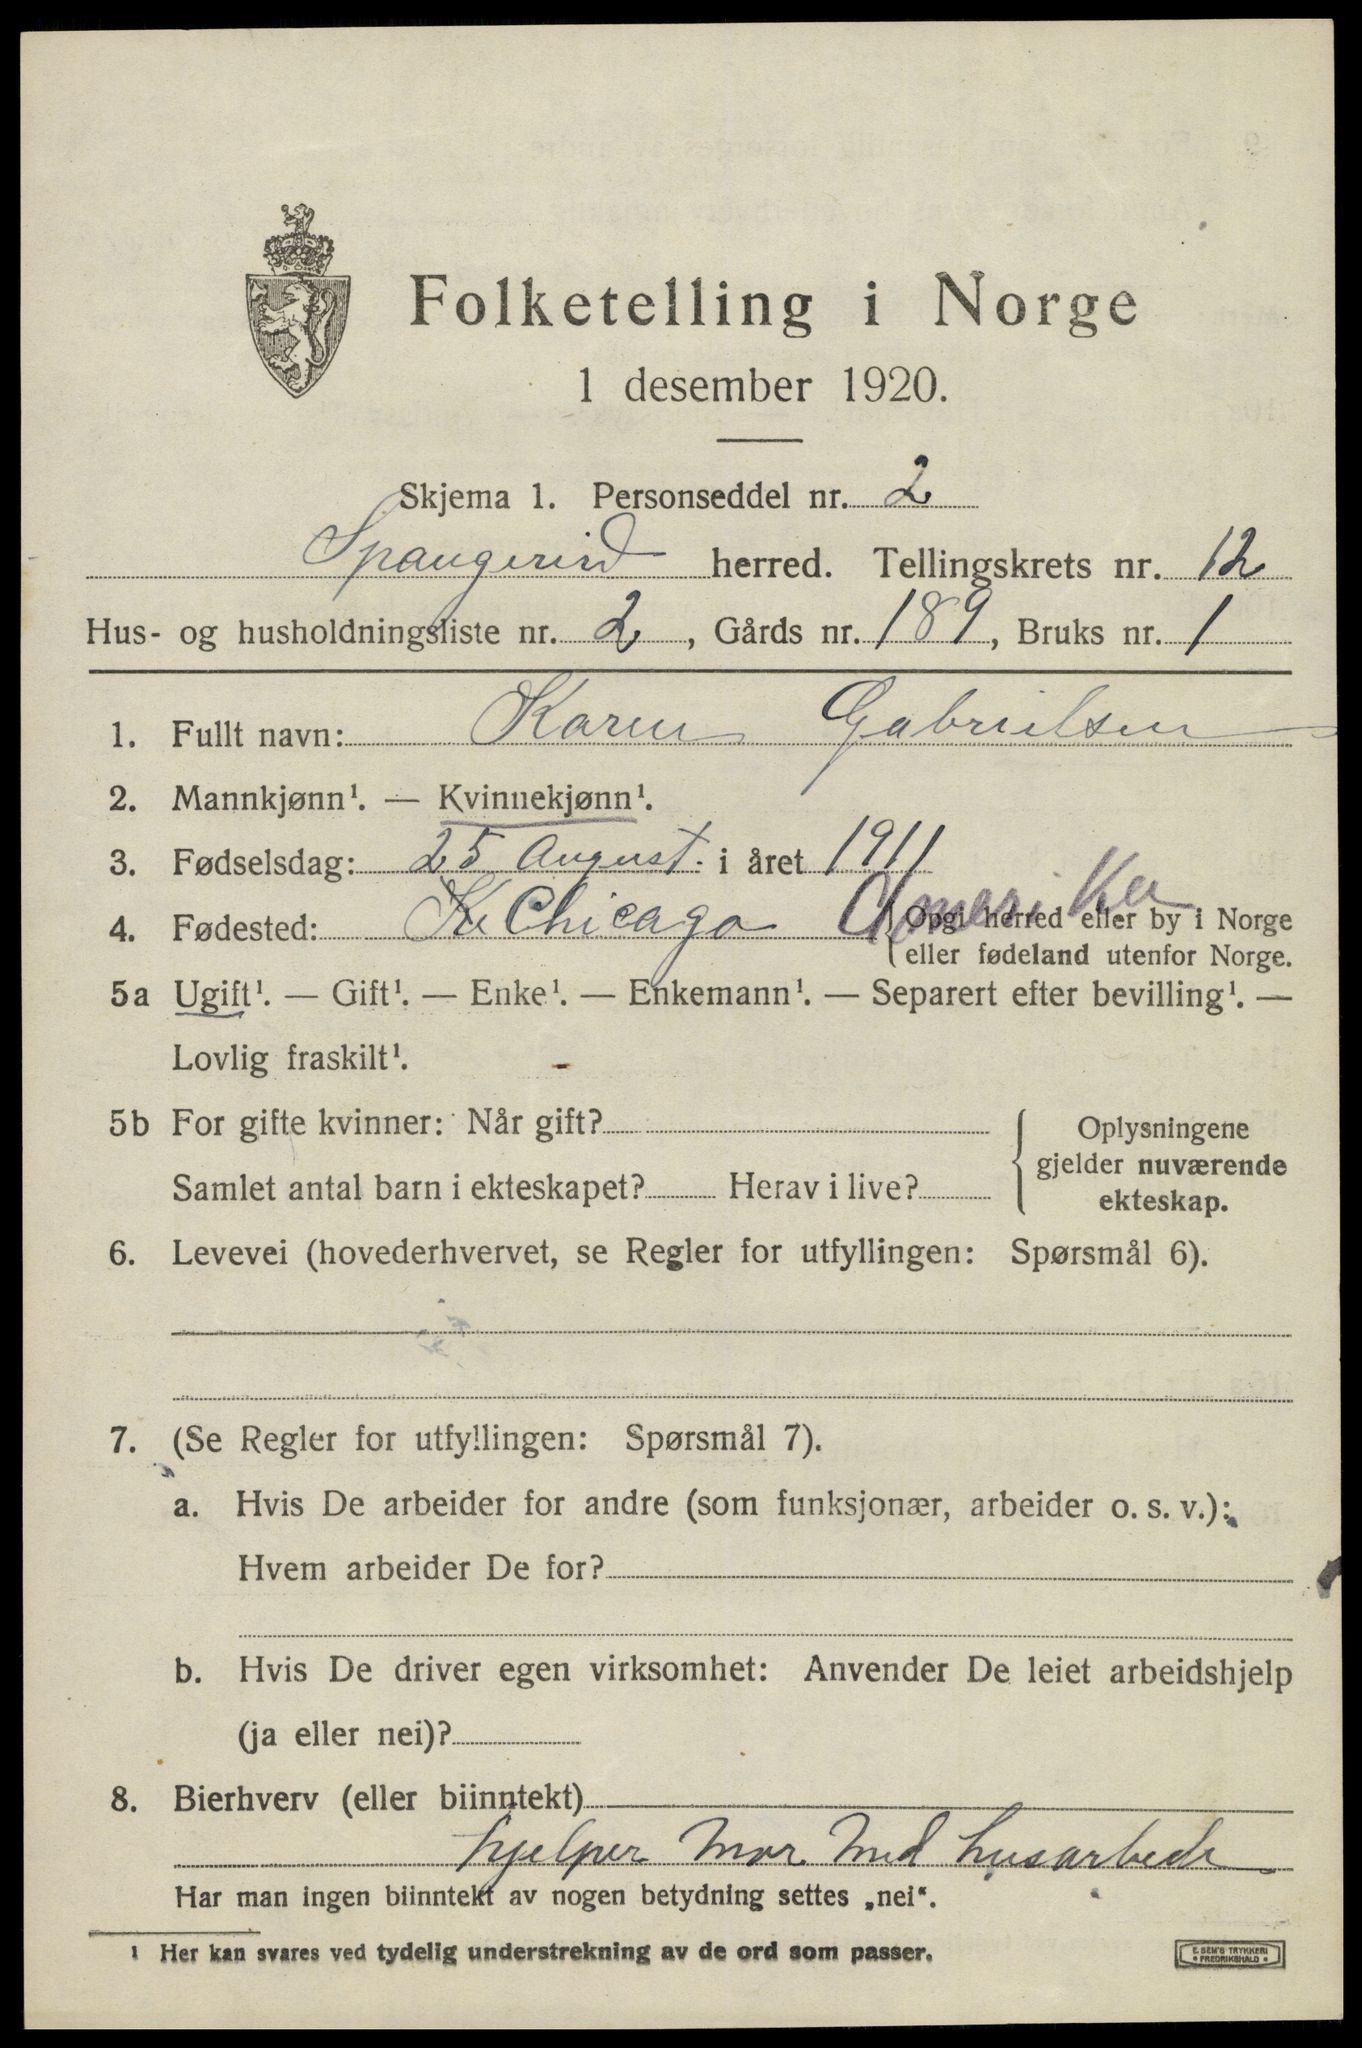 Folketelling i Norge
1 desember 1920.
Skjema 1. Personseddel nr. 2
Spangerid herred. Tellingskrets nr. 12
Hus- og husholdningsliste nr. 2, Gårds nr. 189, Bruks nr. 1
1. Fullt navn: Karen Gabrielsen
2. Mannkjønn¹. — Kvinnekjønn¹.
3. Fødselsdag: 25 August. i året 1911
4. Fødested: Chicago Amerika {Opgi herred eller by i Norge
eller fødeland utenfor Norge.
5a Ugift¹. — Gift¹. — Enke¹. — Enkemann¹. — Separert efter bevilling¹. —
Lovlig fraskilt¹.
5b For gifte kvinner: Når gift?
Samlet antal barn i ekteskapet? Herav i live?
{ Oplysningene
gjelder nuværende
ekteskap.
6. Levevei (hovederhvervet, se Regler for utfyllingen: Spørsmål 6).
7. (Se Regler for utfyllingen: Spørsmål 7).
a. Hvis De arbeider for andre (som funksjonær, arbeider o. s. v.):
Hvem arbeider De for?
b. Hvis De driver egen virksomhet: Anvender De leiet arbeidshjelp
(ja eller nei)?
8. Bierhverv (eller biinntekt)
hjelper Mor Med husarbede
Har man ingen biinntekt av nogen betydning settes „nei“.
¹ Her kan svares ved tydelig understrekning av de ord som passer.
E. SEM'S TRYKKERI
• FREDRIKSHALD •